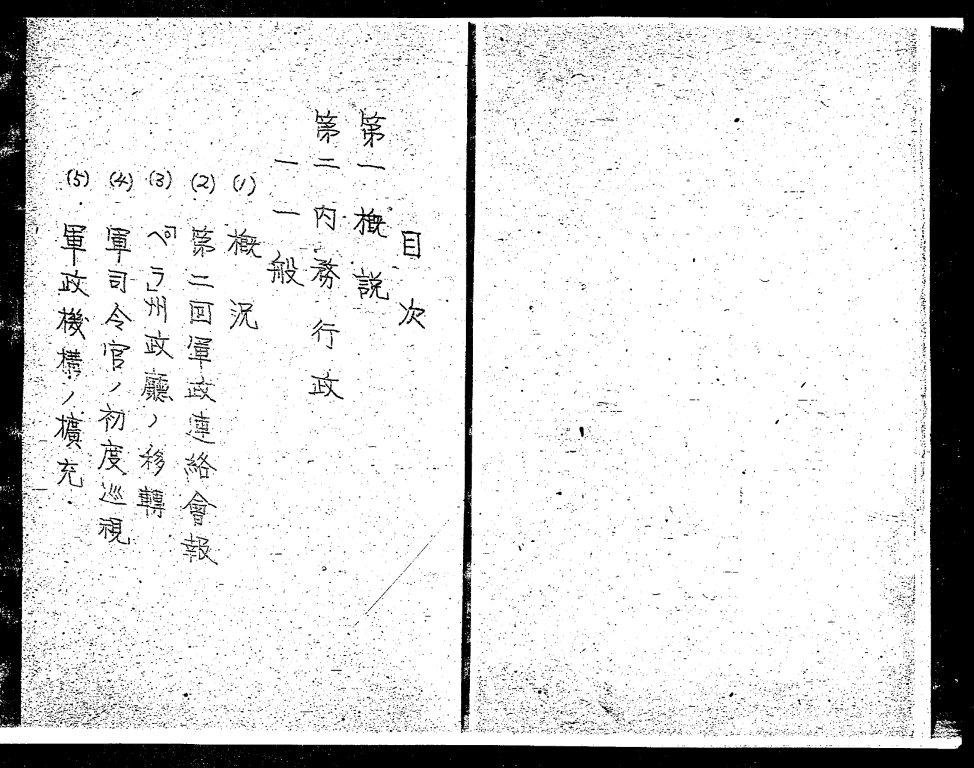 目次
第一 概説
第二 内務行政
一 一般
(1) 概況
(2) 第二回軍政連絡會報
(3) 「ペラ」州政廳ノ移轉
(4) 軍司令官ノ初度巡視
(5) 軍政機構ノ擴充